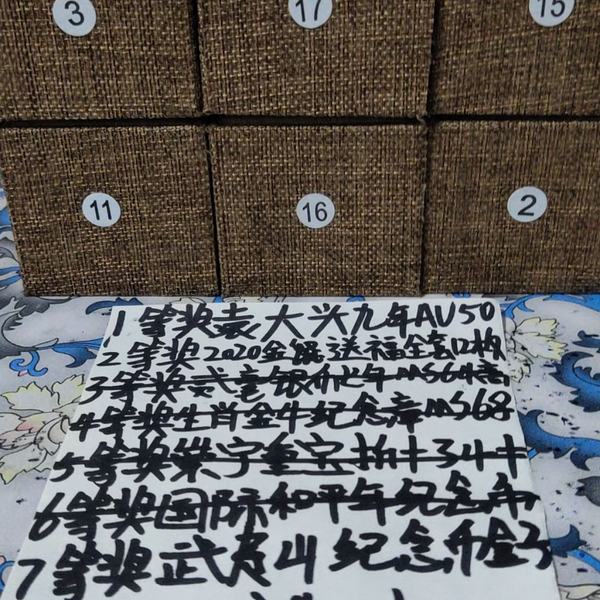 3 17 15
11 16 2
1等奖袁大头九年AU50
2等奖2020金银送福全套12枚
3等奖武 银币 年MS64
4等奖生肖金牛纪念章MS68
5等奖 字 宝
6等奖国际和平年纪念币
7等奖武夷山纪念币